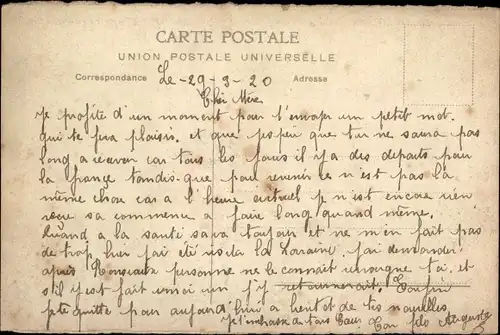 CARTE POSTALE
UNION POSTALE UNIVERSELLE
Correspondance Le - 29 - 3 - 20 Adresse
Cher Mère
Je profite d'un moment pour t'envoyer un petit mot
qui te fera plaisir. et que j'espeu que tu ne saura pas
long a recevoir car tous les jours il y a des departs pour
la france tandis que pour revenir ce n'est pas la
même chose car a l'heure actuel je n'est encore rien
recu sa commence a faire long quand même.
Quand a la santé sava toujours et ne m'en fait pas
de trop. hier j'ai été la Lorraine. j'ai demander
après personne ne le connait toi. et
s'il est fait moi un j'y retournerait. Enfin
je te quitte pour aujourd'hui a bientot de tes nouvelles
Je t'embrasse a tous Coeur Ton fils Auguste